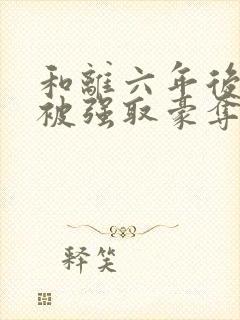 和離六年後
被强取豪奪
释笑